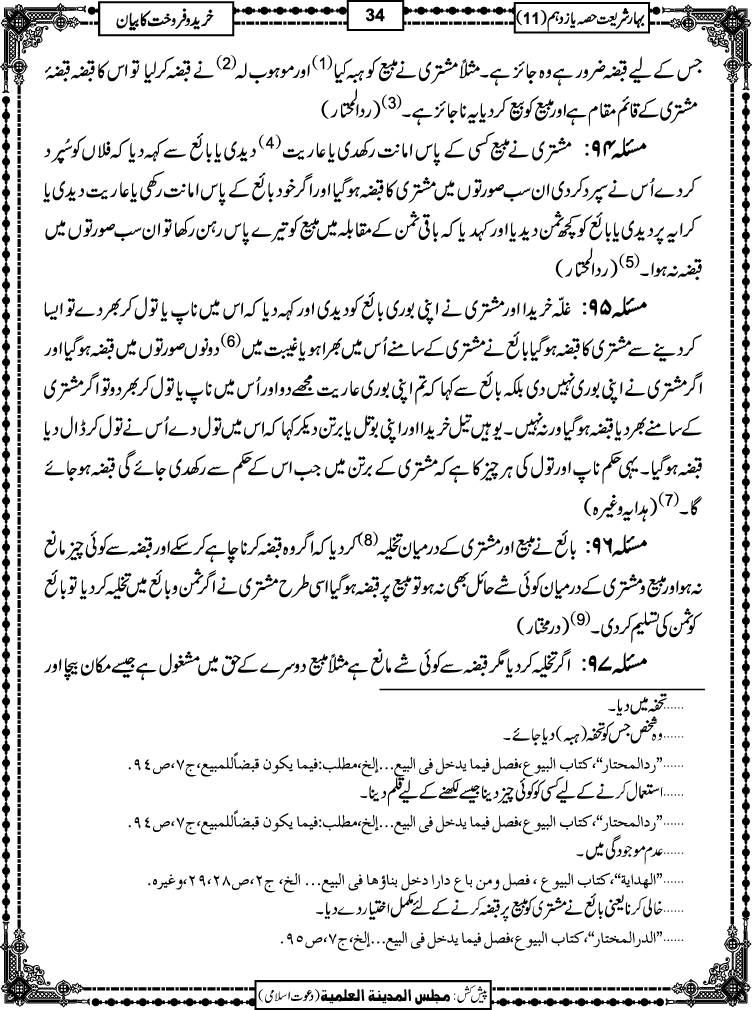 بہارِ شریعت حصہ یازدہم (11)
34
خرید و فروخت کا بیان
جس کے لیے قبضہ ضرور ہے وہ جائز ہے۔ مثلاً مشتری نے مبیع کو ہبہ کیا(1) اور موہوب لہ(2) نے قبضہ کرلیا تو اس کا قبضہ قبضۂ
مشتری کے قائم مقام ہے اور مبیع کو بیع کردیا یہ ناجائز ہے۔(3) (ردالمحتار)
مسئلہ ۹۴: مشتری نے مبیع کسی کے پاس امانت رکھدی یا عاریت(4) دیدی یا بائع سے کہہ دیا کہ فلاں کو سُپرد
کردے اُس نے سپرد کردی ان سب صورتوں میں مشتری کا قبضہ ہوگیا اور اگر خود بائع کے پاس امانت رکھی یا عاریت دیدی یا
کرایہ پر دیدی یا بائع کو کچھ ثمن دیدیا اور کہدیا کہ باقی ثمن کے مقابلہ میں مبیع کو تیرے پاس رہن رکھا تو ان سب صورتوں میں
قبضہ نہ ہوا۔(5) (ردالمحتار)
مسئلہ ۹۵: غلّہ خریدا اور مشتری نے اپنی بوری بائع کو دیدی اور کہہ دیا کہ اس میں ناپ یا تول کر بھردے تو ایسا
کردینے سے مشتری کا قبضہ ہوگیا بائع نے مشتری کے سامنے اُس میں بھرا ہو یا غیبت میں(6) دونوں صورتوں میں قبضہ ہوگیا اور
اگر مشتری نے اپنی بوری نہیں دی بلکہ بائع سے کہا کہ تم اپنی بوری عاریت مجھے دو اور اُس میں ناپ یا تول کر بھر دو تو اگر مشتری
کے سامنے بھر دیا قبضہ ہوگیا ورنہ نہیں۔ یوہیں تیل خریدا اور اپنی بوتل یا برتن دیکر کہا کہ اس میں تول دے اُس نے تول کر ڈال دیا
قبضہ ہوگیا۔ یہی حکم ناپ اور تول کی ہر چیز کا ہے کہ مشتری کے برتن میں جب اس کے حکم سے رکھدی جائے گی قبضہ ہوجائے
گا۔(7) (ہدایہ وغیرہ)
مسئلہ ۹۶: بائع نے مبیع اور مشتری کے درمیان تخلیہ(8) کردیا کہ اگر وہ قبضہ کرنا چاہے کرسکے اور قبضہ سے کوئی چیز مانع
نہ ہو اور مبیع و مشتری کے درمیان کوئی شے حائل بھی نہ ہو تو مبیع پر قبضہ ہوگیا اسی طرح مشتری نے اگر ثمن و بائع میں تخلیہ کردیا تو بائع
کو ثمن کی تسلیم کردی۔(9) (درمختار)
مسئلہ ۹۷: اگر تخلیہ کردیا مگر قبضہ سے کوئی شے مانع ہے مثلاً مبیع دوسرے کے حق میں مشغول ہے جیسے مکان بیچا اور
......تحفہ میں دیا۔
......وہ شخص جس کو تحفہ (ہبہ) دیا جائے۔
......”ردالمحتار“، کتاب البیوع، فصل فیما یدخل فی البیع...إلخ، مطلب: فیما یکون قبضاً للمبیع، ج۷، ص۹۴.
......استعمال کرنے کے لیے کسی کو کوئی چیز دینا جیسے لکھنے کے لیے قلم دینا۔
......”ردالمحتار“، کتاب البیوع، فصل فیما یدخل فی البیع...إلخ، مطلب: فیما یکون قبضاً للمبیع، ج۷، ص۹۴.
......عدم موجودگی میں۔
......”الھدایة“، کتاب البیوع، فصل ومن باع دارا دخل بناؤھا فی البیع... الخ، ج۲، ص۲۸،۲۹، وغیرہ.
......خالی کرنا یعنی بائع نے مشتری کو مبیع پر قبضہ کرنے کے لئے مکمل اختیار دے دیا۔
......”الدرالمختار“، کتاب البیوع، فصل فیما یدخل فی البیع...إلخ، ج۷، ص۹۵.
پیش کش: مجلس المدینة العلمیة (دعوت اسلامی)